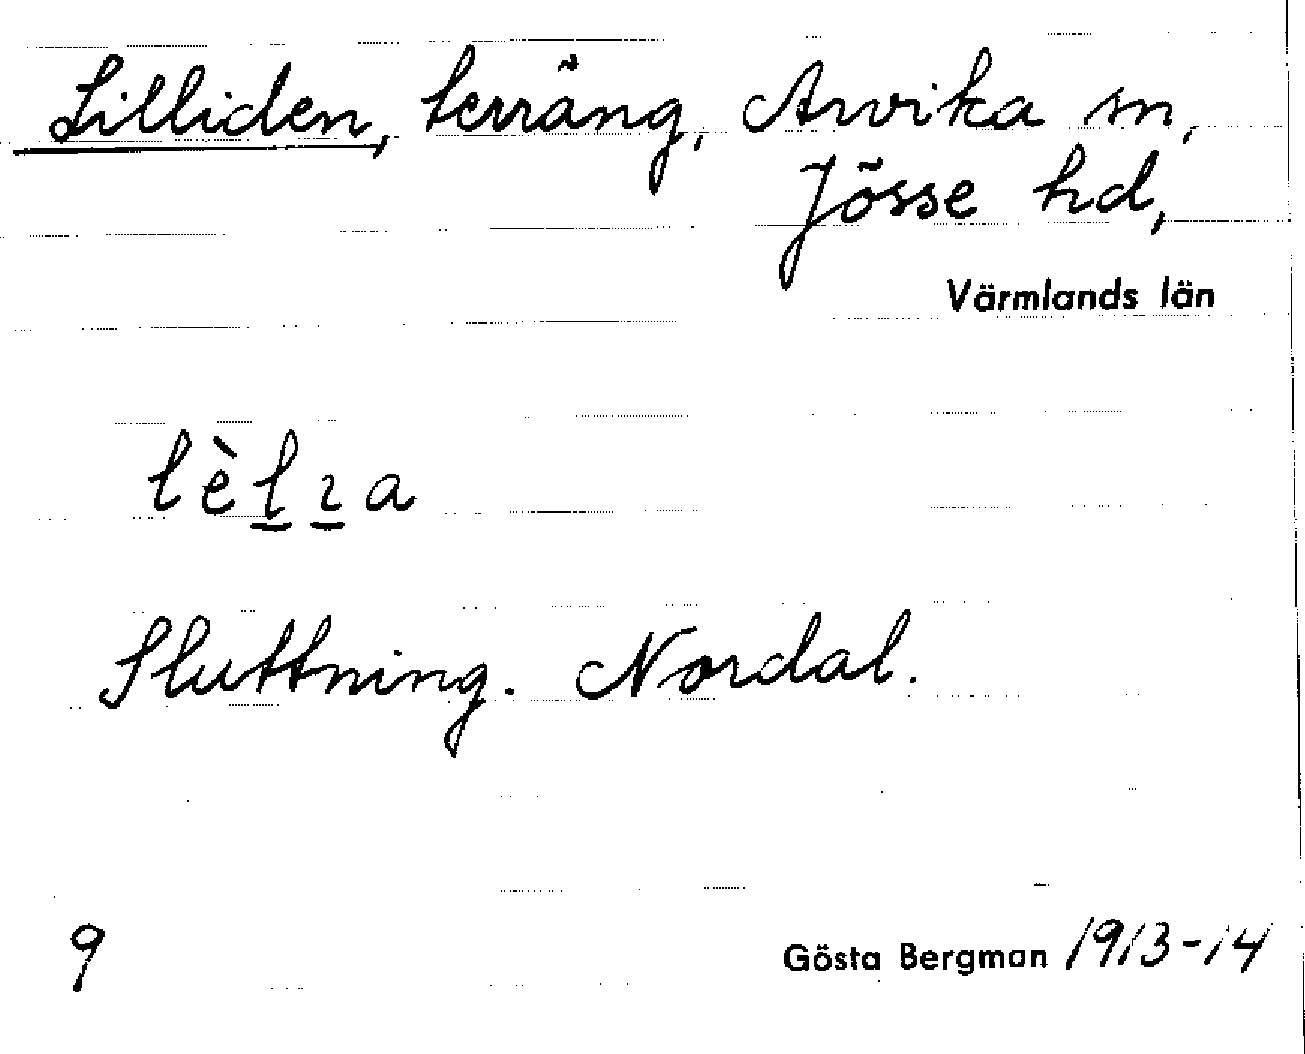 Lilliden, terräng, Arvika sn,
Jösse hd,
Värmlands län
lèl̲ı̲a
Sluttning. Nordal.
9
Gösta Bergman 1913-14